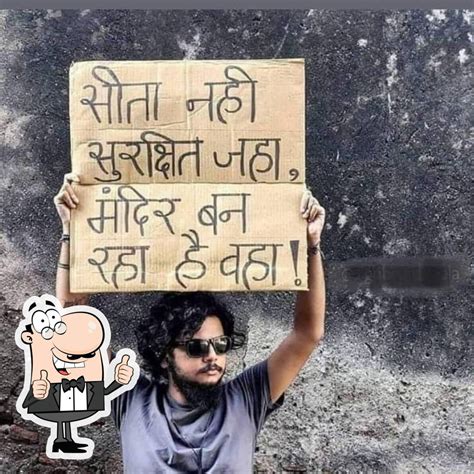 सीता नही
सुरक्षित जहा,
मंदिर बन
रहा है वहा!